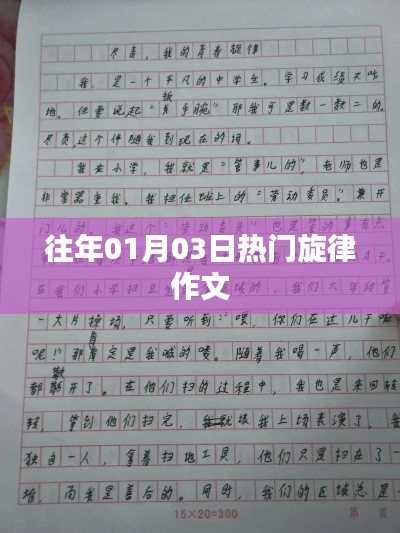 尽责，我的青春旋律
我，是一个平凡的中学生。学习成绩不咋
地，但要说起"老手腕"那我可是数一数二的。
尽责这个伴随我到现在的词。
我在小学，我就是"管事儿的"，老师也是
非常器重我。我担任班上的"劳动委员"，
往年01月03日热门旋律
作文
一大片操场，只要听到："喂，你们在这儿干嘛
呢！"那肯定是我喊的喽。随着我喝一声，他们
都散开了。在他们扫的过程中，我也是来回转
转。等到他们扫完，我就该我上场表演了，我
独自一人，拿着扫地工具，他们只是扫在了一
堆，而我是善后的。同时，我们的区域总是
15×20=300
第 页